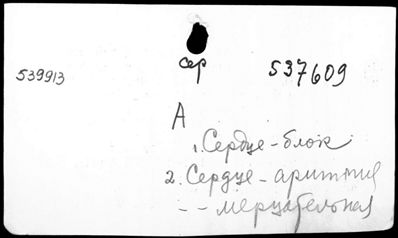 сер
539913
537609
А
1. Сердце-блок
2. Сердце-аритмия
-- мерцательная